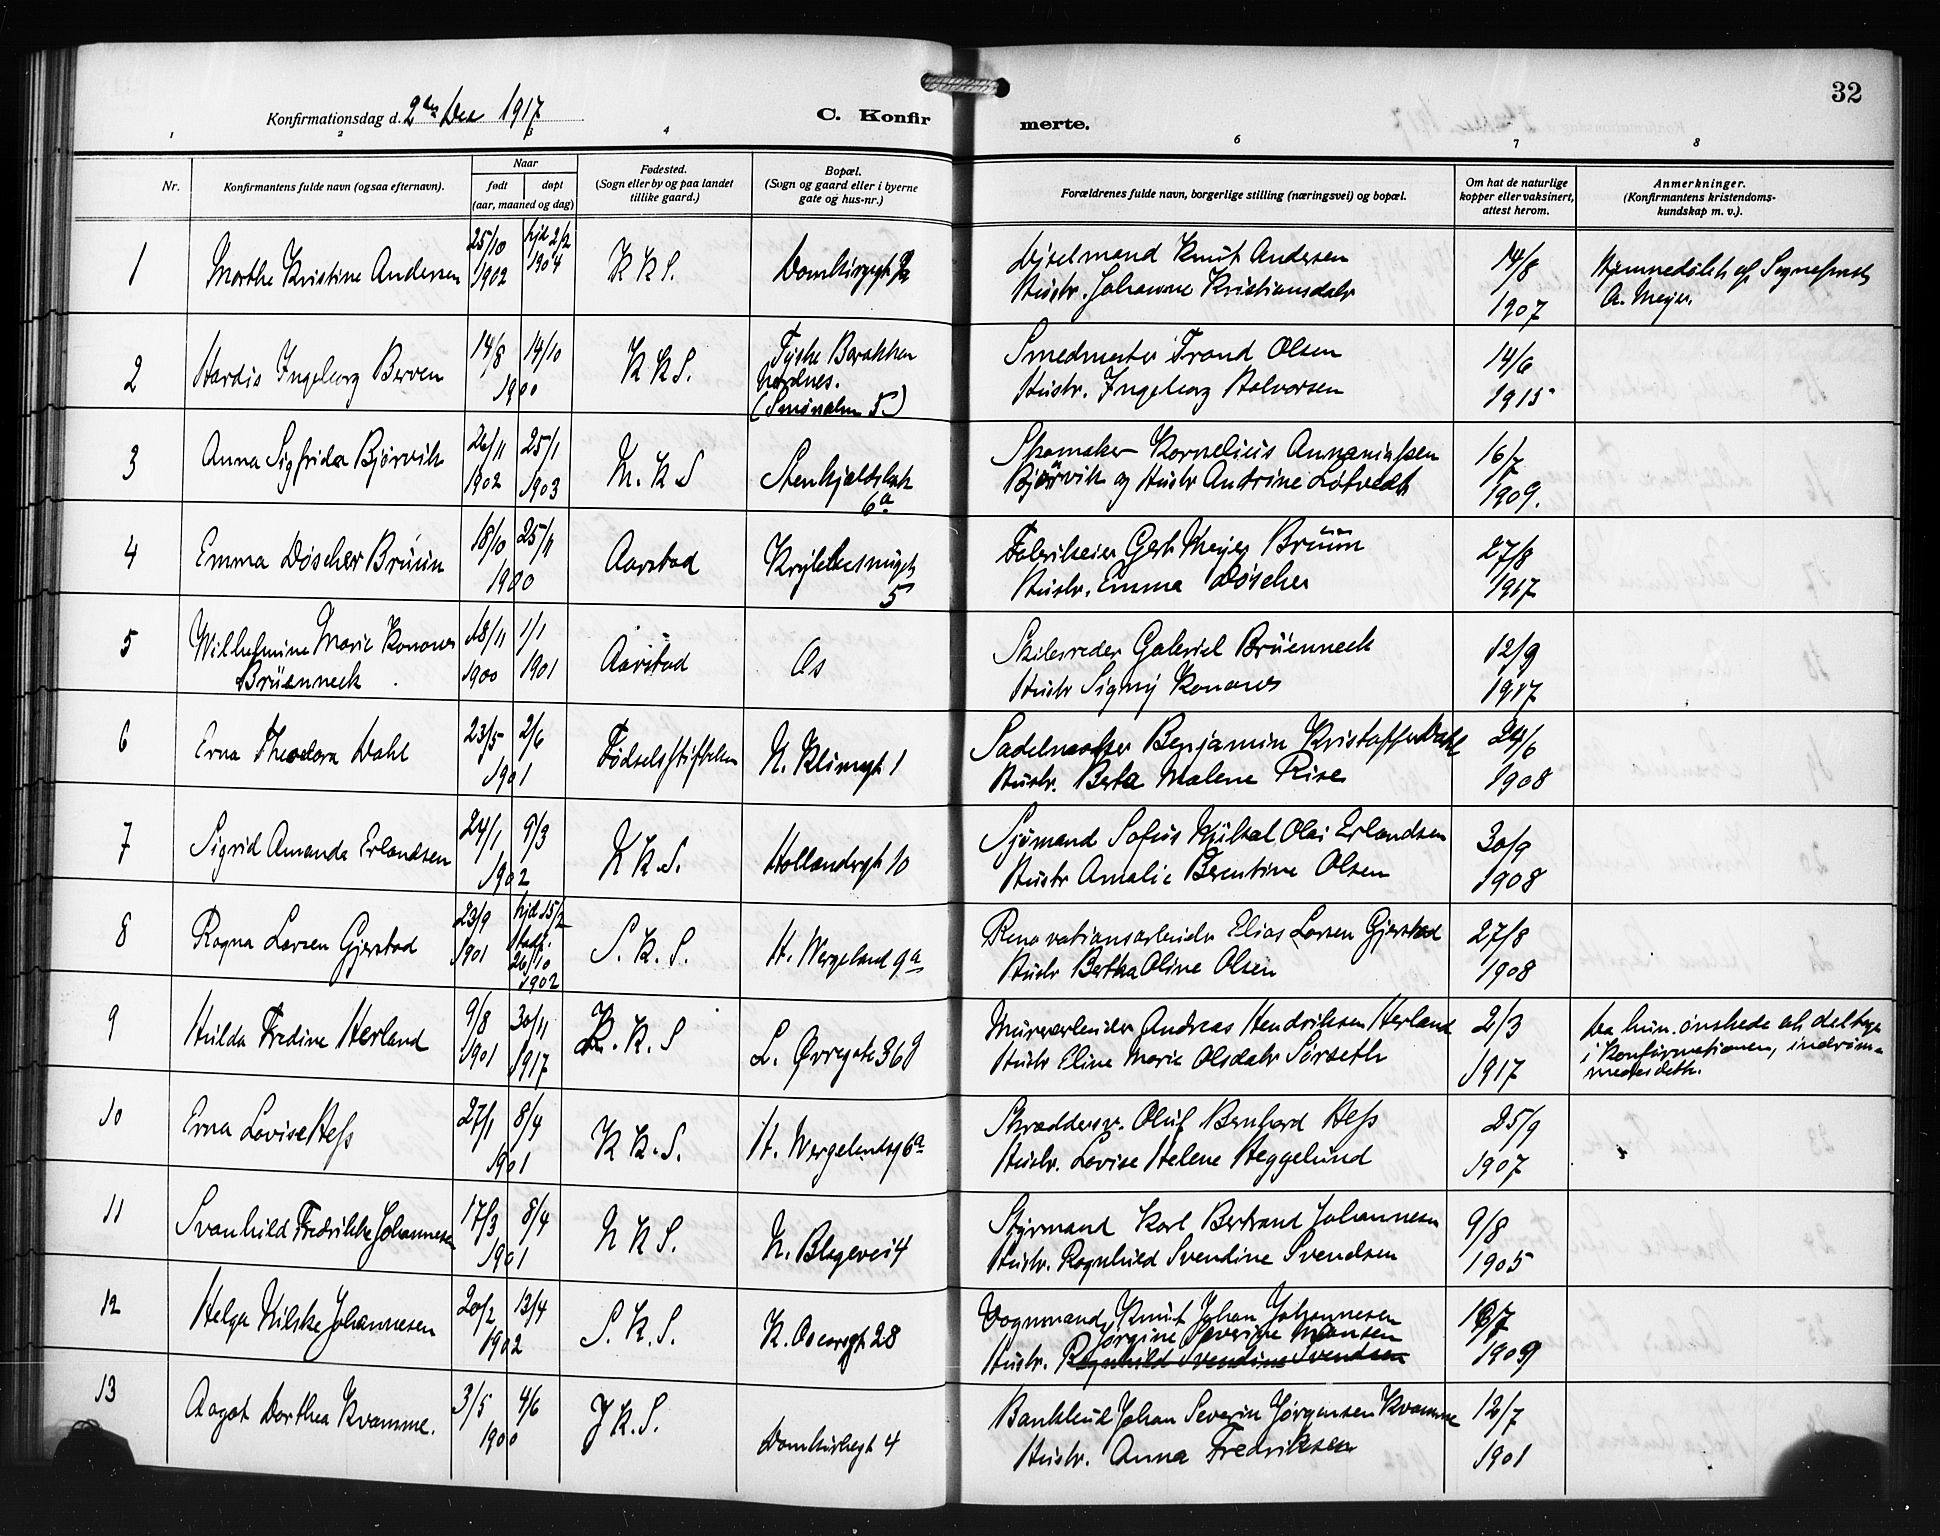 32
Konfirmationsdag d. 2den Dec 1917
C. Konfirmerte.
1 2 3 4 6 7 8
Nr.
Konfirmantens fulde navn (ogsaa efternavn).
Naar
født
døpt
(aar, maaned og dag)
Fødested.
(Sogn eller by og paa landet
tillike gaard.)
Bopæl.
(Sogn og gaard eller i byerne
gate og hus-nr.)
Forældrenes fulde navn, borgerlige stilling (næringsvei) og bopæl.
Om hat de naturlige
kopper eller vaksinert,
attest herom.
Anmerkninger.
(Konfirmantens kristendoms-
kundskap m. v.).
1
Marthe Kristine Andersen
25/10
1902
hjd 2/2
1904
K K S.
Domkirkegt
Knut Andersen
Hustr. Johanne Kristiansdatr
14/8
1907
Hjemmedøbt af Sogneprest
A. Meyer.
2
Hardis Ingeborg Berven
14/8 14/10
1900
K K S.
Tyske Barakken
Nordnes.
(Smøralm 5)
Smedmester Trond Olsen
Hustr. Ingeborg Halvorsen
14/6
1915
3
Anna Sigfrida Bjørvik
26/11
1902
25/1
1903
N. K S
Stenkjelderbak
6a
Skomaker Kornelius Annaniassen
Bjørvik og Hustr Andrine Løtvedt
16/7
1909.
4
Emma Døscher Brüün
18/10 25/11
1900
Aarstad
Krybbesmugt
5
Fabrikeier Gerh Meyer Brüün
Hustr. Emma Døscher
27/8
1917
5
Wilhelmine Marie Konow
Brüenneck
18/11
1900
1/1
1901
Aarstad
Os
Skibsreder Gabriel Brüenneck
Hustr Signy Konow
12/9
1917
6
Erna Theodora Dahl
23/5 2/6
1901
Fødselsstiftelsen
N. Klimagt 1
Sadelmaker Benjamin Kristoffer Dahl
Hustr. Berta Malene Rise
24/6
1908
7
Sigrid Amanda Erlandsen
24/1 9/3
1902
N K. S.
Hollandergt 10
Sjømand Sofus Olai Erlandsen
Hustr Amalie Berentine Olsen
30/9
1908
8
Ragna Larsen Gjerstad
23/9
1901
hjd 15/2
stadf.
26/10
1902
S. K. S.
H. Wergeland 9a
Renovationsarbeider Elias Larsen Gjerstad
Hustr Bertha Oline Olsen
27/8
1908
9
Hulda Fredine Herland
9/8
1901
30/11
1917
K. K. S
L. Øvregate 36
Murerarbeider Andreas Hendriksen Herland
Hustr Eline Marie Olsdatr Sørseth
2/3
1917
Da hun ønskede at deltage
i Konfirmationen, indrøm-
medes dette.
10
Erna Lovise Hess
27/1 8/4
1901
K K. S.
H. Wergelandsg 6a
Skræddersv. Oluf Bernhard Hess
Hustr. Lovise Helene Heggelund
25/9
1907
11
Svanhild Fredrikke Johannesen
17/3 8/4
1901
N K S.
N. Blegevei 4
Styrmand Karl Bertrand Johannesen
Hustr. Ragnhild Svendine Svendsen
9/8
1905
12
Helga Johannesen
20/2 13/4
1902
S. K. S.
K. Oscarsgt 28
Vognmand Knut Johan Johannesen
Jørgine Severine Monsen
Hustr. Ragnhild Svendine Svendsen
1909
13
Aagot Dorthea Kvamme.
3/5 4/6
1900
J K. S.
Domkirkegt 4
Bankbud Johan Severin Jørgensen Kvamme
Hustr. Anna Fredriksen
12/7
1901